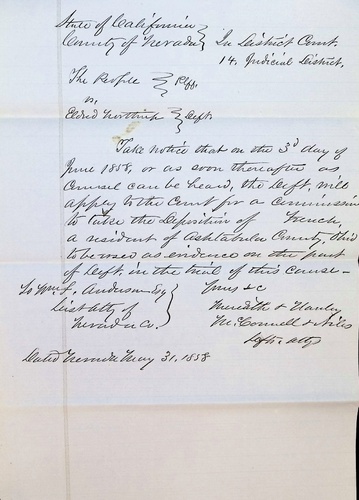 State of California
County of Nevada } In District Court
14. Judicial District.
The People } Plff.
vs.
Eldred Northup } Deft.
Take notice that on the 3d day of
June 1858, or as soon thereafter as
Counsel can be heard, the Deft. will
apply to the Court for a Commission
to take the Deposition of French,
a resident of Ashtabula County, Ohio
to be used as evidence on the part
of Deft. in the trial of this cause—
To Wm. F. Anderson Esq } Yours &c
Dist Atty of Meredith & Hawley
Nevada Co. McConnell & Niles
Defts Attys
Dated Nevada May 31, 1858